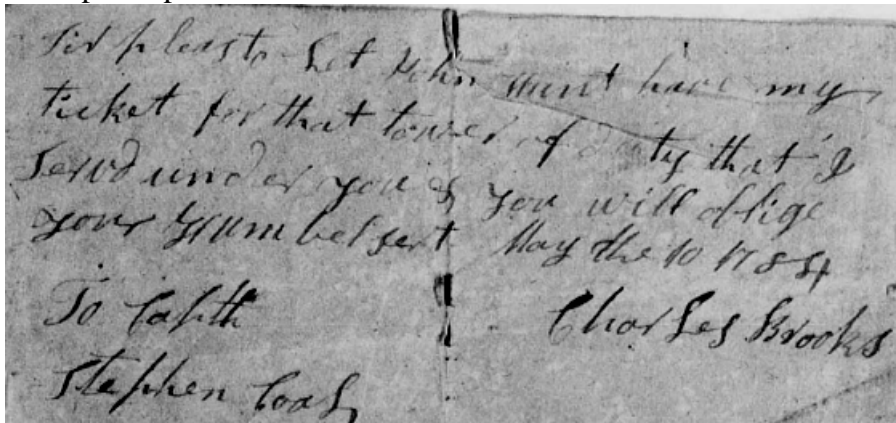 Sir pleasto Let John Hunt have my
ticket for that tower of duty that I
Servd under you & you will oblige
your Hum bel sert May the 10 1784
To Captn
Charles Brooks
Stephen